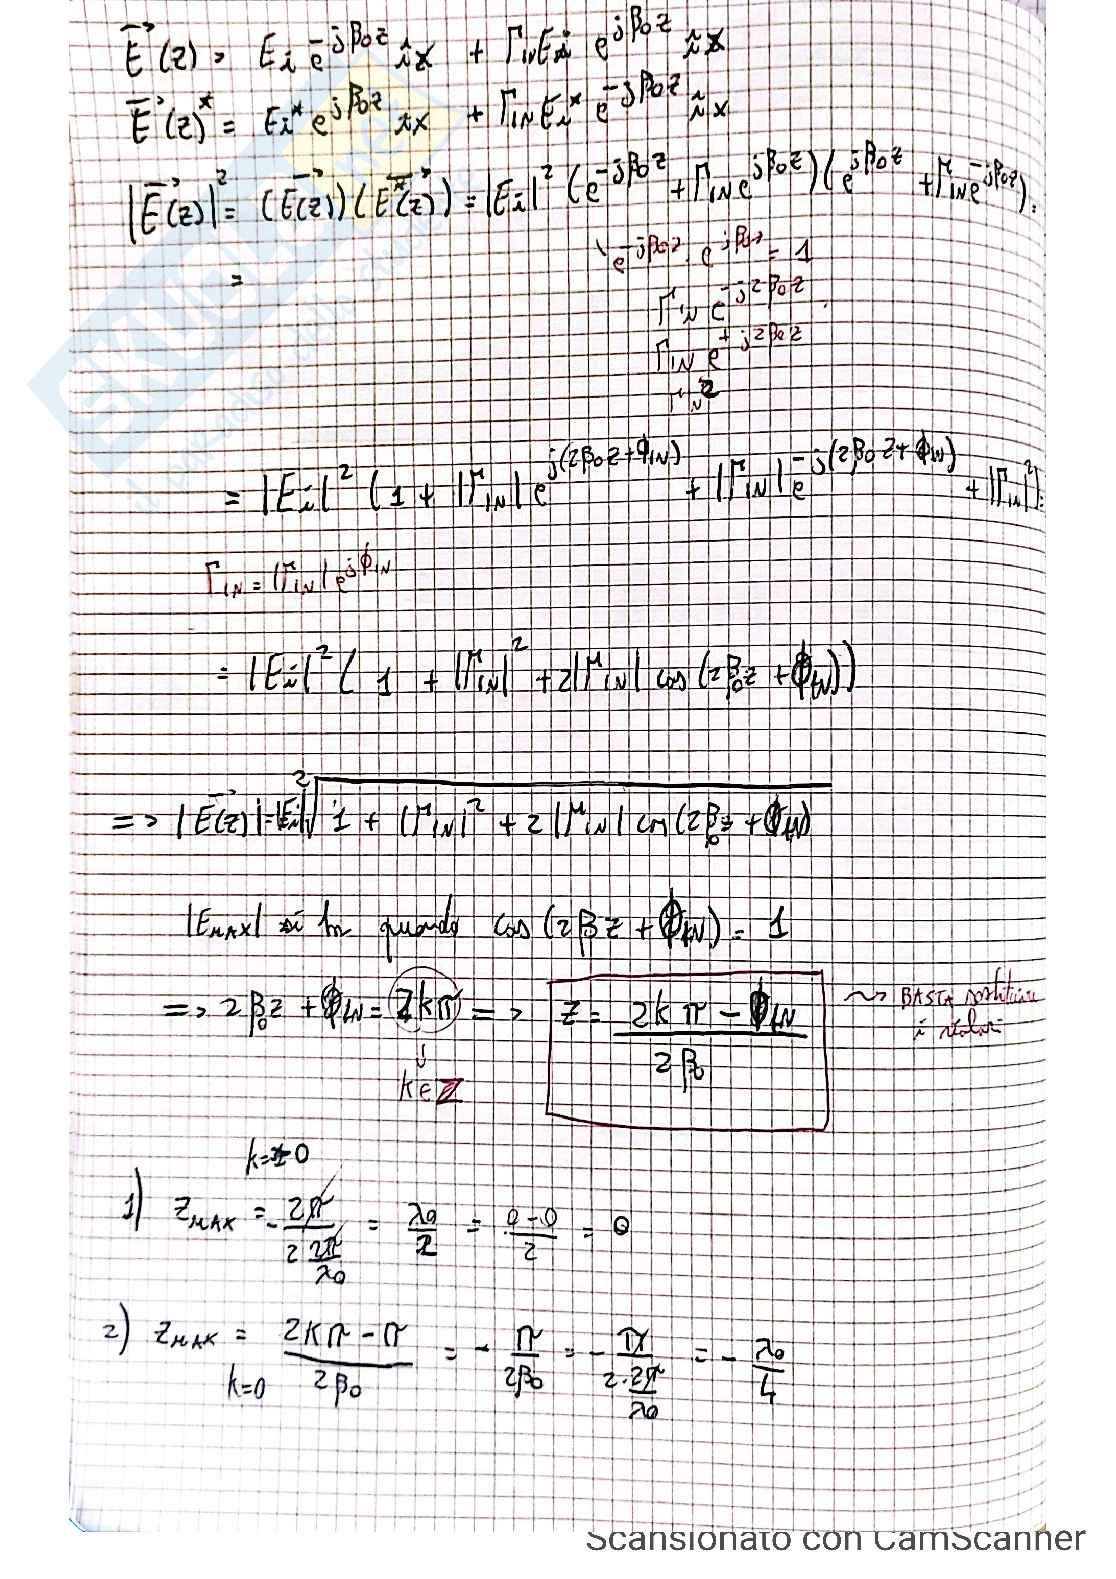 E⃗(z) = E_i e^{-jβ₀z} îx + Γ_IN E_i e^{jβ₀z} îx
E⃗(z)* = E_i* e^{jβ₀z} îx + Γ_IN E_i* e^{-jβ₀z} îx
|E⃗(z)|² = (E⃗(z))(E⃗*(z)) = |E_i|² (e^{-jβ₀z} + Γ_IN e^{jβ₀z})(e^{jβ₀z} + Γ_IN e^{-jβ₀z}) =
e^{-jβ₀z} · e^{jβ₀z} = 1
=
Γ_IN e^{-j2β₀z}
Γ_IN e^{+j2β₀z}
Γ_IN²
= |E_i|² (1 + |Γ_IN| e^{j(2β₀z+ϕ_IN)} + |Γ_IN| e^{-j(2β₀z+ϕ_IN)} + |Γ_IN|²) =
Γ_IN = |Γ_IN| e^{jϕ_IN}
= |E_i|² (1 + |Γ_IN|² + 2|Γ_IN| cos(2β₀z + ϕ_IN))
=> |E⃗(z)| = |E_i| ²√(1 + |Γ_IN|² + 2|Γ_IN| cos(2β₀z + ϕ_IN))
|E_MAX| si ha quando cos(2βz + ϕ_IN) = 1
=> 2β₀z + ϕ_IN = 2kπ => z = (2kπ - ϕ_IN)/(2β₀) ~> BASTA sostituire
i valori
↓
k∈Z
k=0
1) z_MAX = - 2π/(2 2π/λ₀) = λ₀/2 = (0-0)/2 = 0
2) z_MAX = (2kπ - π)/(2β₀) = - π/(2β₀) = - π/(2·2π/λ₀) = - λ₀/4
k=0
Scansionato con CamScanner